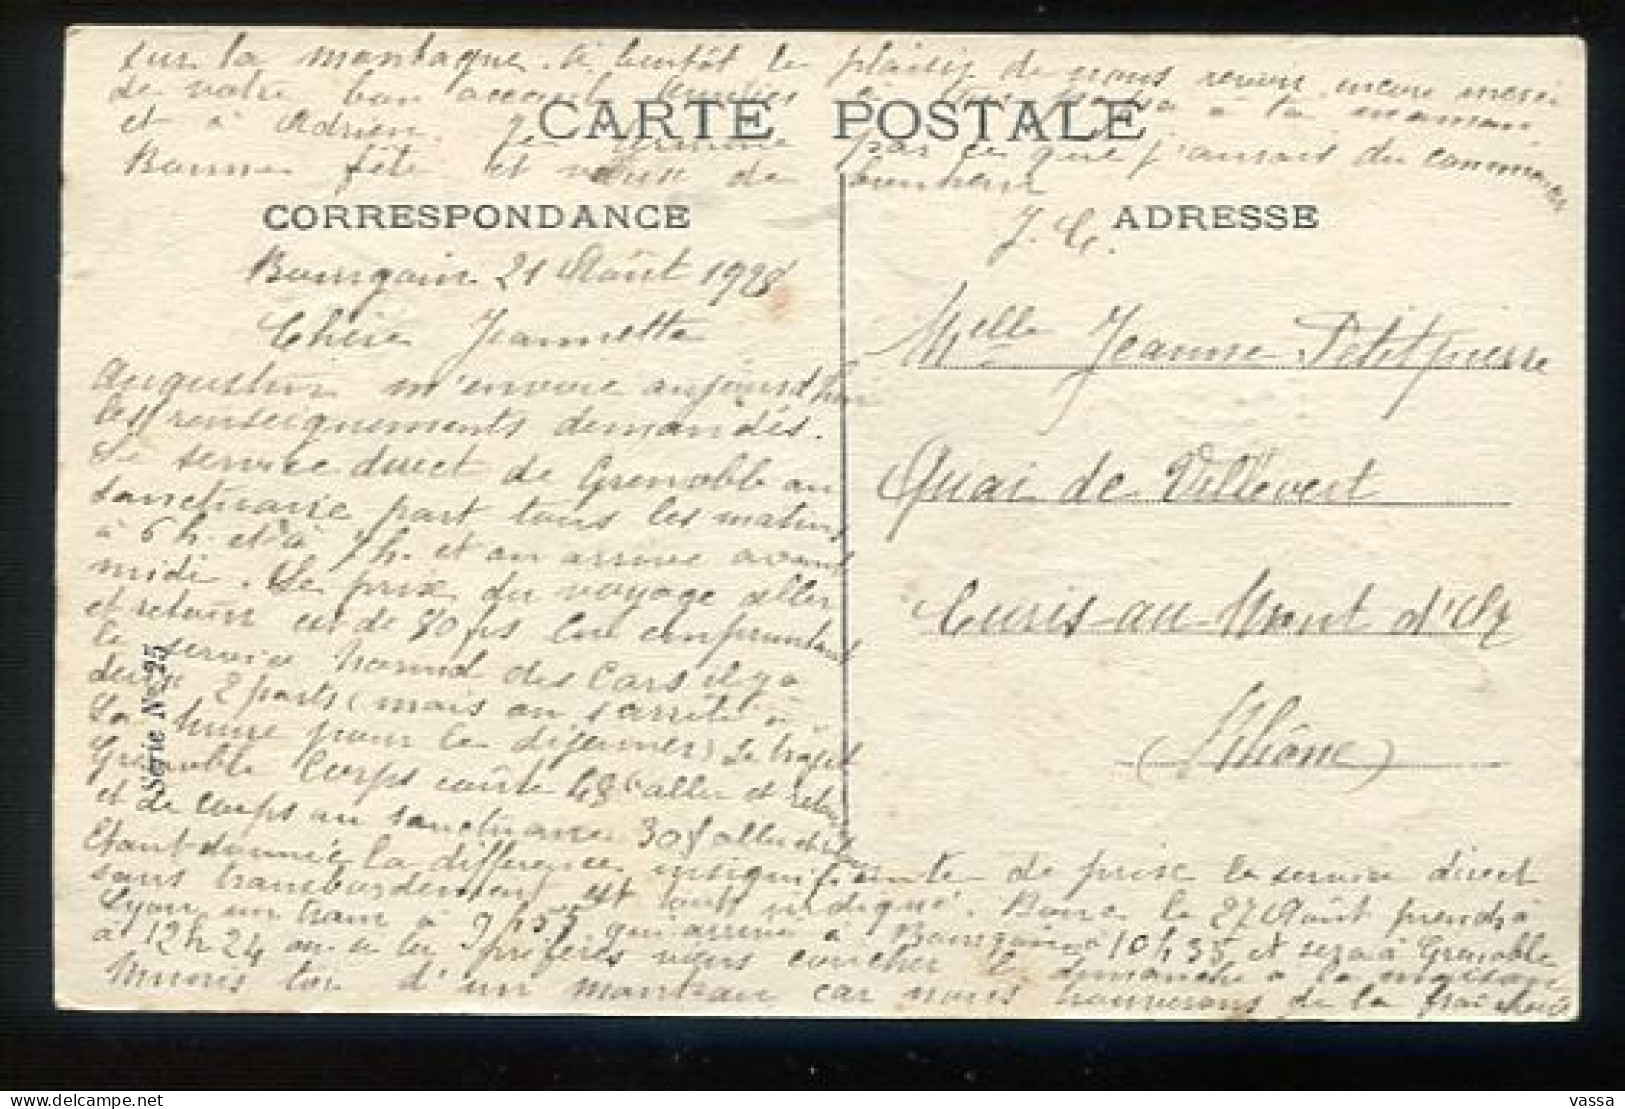 sur la montagne. A bientôt le plaisir de nous revoir, encore merci
de votre bon accueil. Amitiés à à ta maman
et à Adrien. Je termine par ce que j'aurais du commencer
Bonne fête et vœux de bonheur
J. C.
CARTE POSTALE
CORRESPONDANCE
ADRESSE
Bourgoin 21 Août 1928
Chère Jeannette
Augustin m'envoie aujourd'hui
les renseignements demandés.
Le service direct de Grenoble au
sanctuaire part tous les matins
à 6 h. et à 7 h. et on arrive avant
midi. Le prix du voyage aller
et retour est de 70 frs En empruntant
le service normal des Cars il y a
deux départs (mais on s'arrête à
La Mure pour le déjeuner) Le trajet
Grenoble Corps coûte 48f aller et retour
et de Corps au sanctuaire 30f aller et ret
Etant donnée la différence insignifiante de prix le service direct
sans transbordement est tout indiqué. Donc le 27 Août prends à
Lyon un train à 9h55 qui arrive à Bourgoin à 10h35 et sera à Grenoble
à 12h24 ou si tu préfères viens coucher le dimanche à la maison
Munis toi d'un manteau car nous trouverons de la fraîcheur
Melle Jeanne Petitpierre
Quai de Villevert
Curis-au-Mont d'Or
(Rhône)
Série No 25
vassa